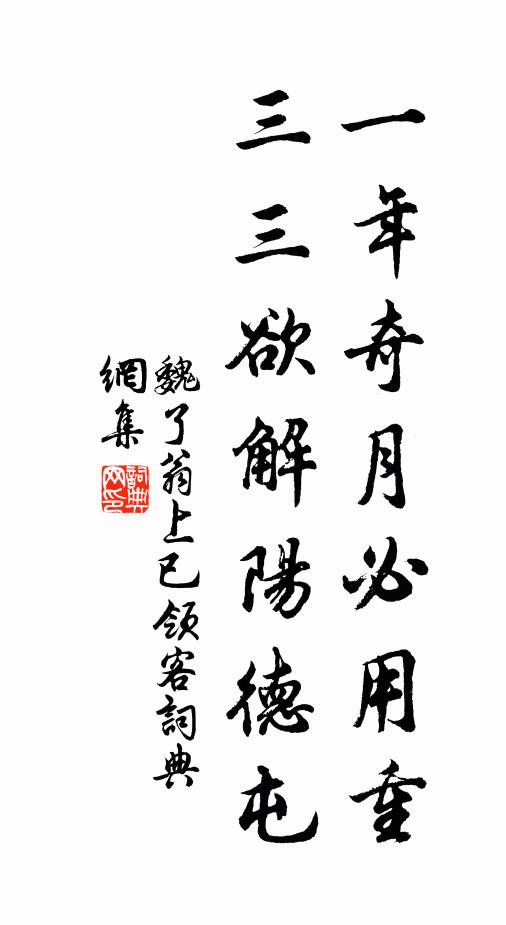 一年奇月必用重
三三欲解陽德屯
魏了翁上巳領客詞典
網集
詞典
网印